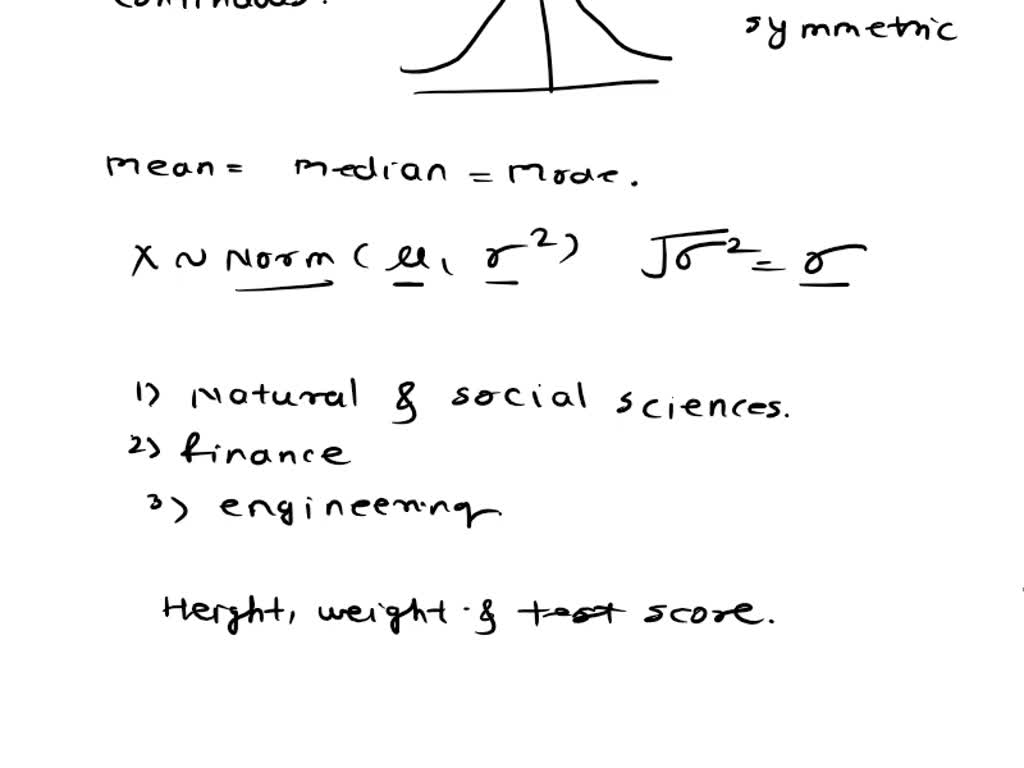 continuous.
symmetric
mean = median = mode.
X ~ Norm (μ, σ²) √σ² = σ
1) Natural & social sciences.
2) finance
3) engineering
Height, weight & test score.